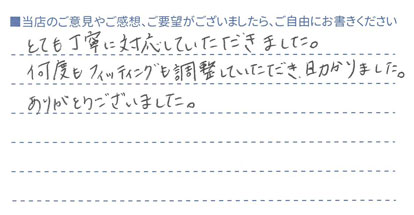 ■当店のご意見やご感想、ご要望がございましたら、ご自由にお書きください
とても丁寧に対応していただきました。
何度もフィッティングも調整していただき、助かりました。
ありがとうございました。